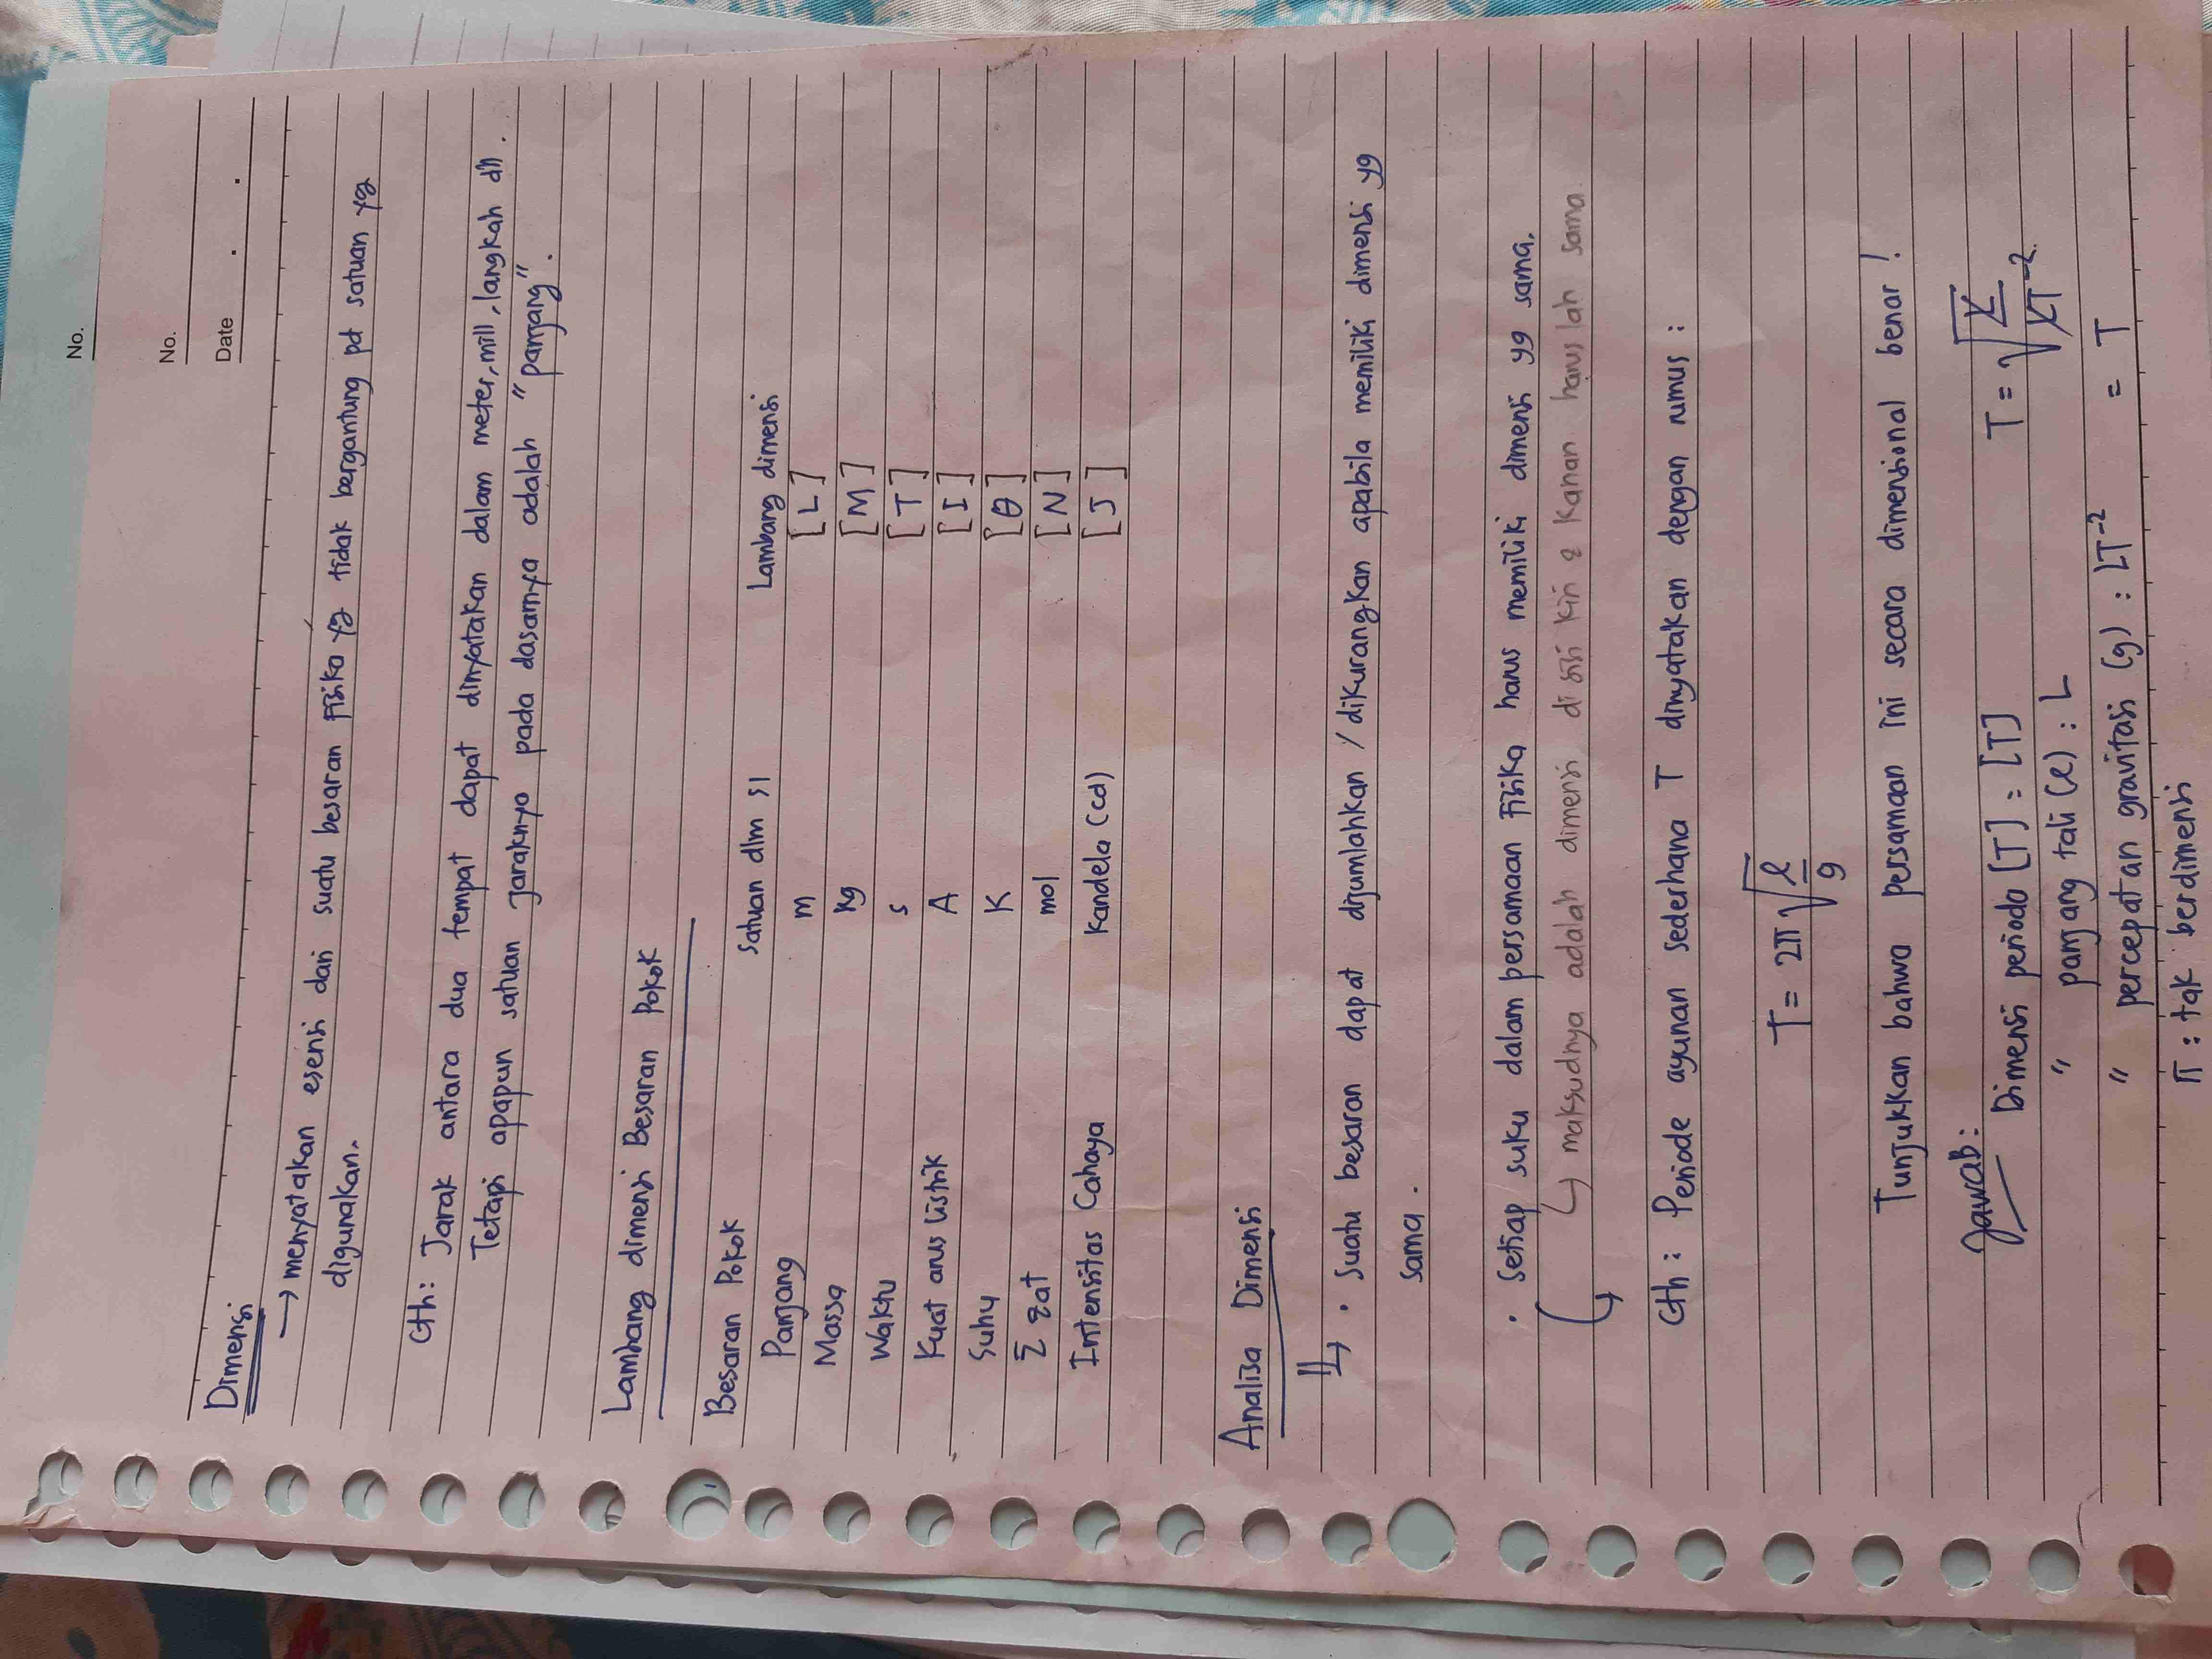 No.
No.
Date . .
Dimensi
→ menyatakan esensi dari suatu besaran Fisika yg tidak bergantung pd satuan yg
digunakan.
Cth: Jarak antara dua tempat dapat dinyatakan dalam meter, mill, langkah dll.
Tetapi apapun satuan jaraknya pada dasarnya adalah "panjang".
Lambang dimensi Besaran Pokok
Besaran Pokok Satuan dlm SI Lambang dimensi
Panjang m [L]
Massa kg [M]
Waktu s [T]
Kuat arus listrik A [I]
Suhu K [θ]
Σ zat mol [N]
Intensitas Cahaya Kandela (cd) [J]
Analisa Dimensi
↳ • Suatu besaran dapat dijumlahkan / dikurangkan apabila memiliki dimensi yg
sama.
• Setiap suku dalam persamaan Fisika harus memiliki dimensi yg sama.
↳ maksudnya adalah dimensi di sisi kiri & kanan haruslah sama
Cth : Periode ayunan sederhana T dinyatakan dengan rumus :
T = 2π √(l/g)
Tunjukkan bahwa persamaan ini secara dimensional benar !
Jawab :
Dimensi perioda [T] : [T] T = √(L/LT⁻²)
" panjang tali (l) : L
" percepatan gravitasi (g) : LT⁻² = T
π : tak berdimensi